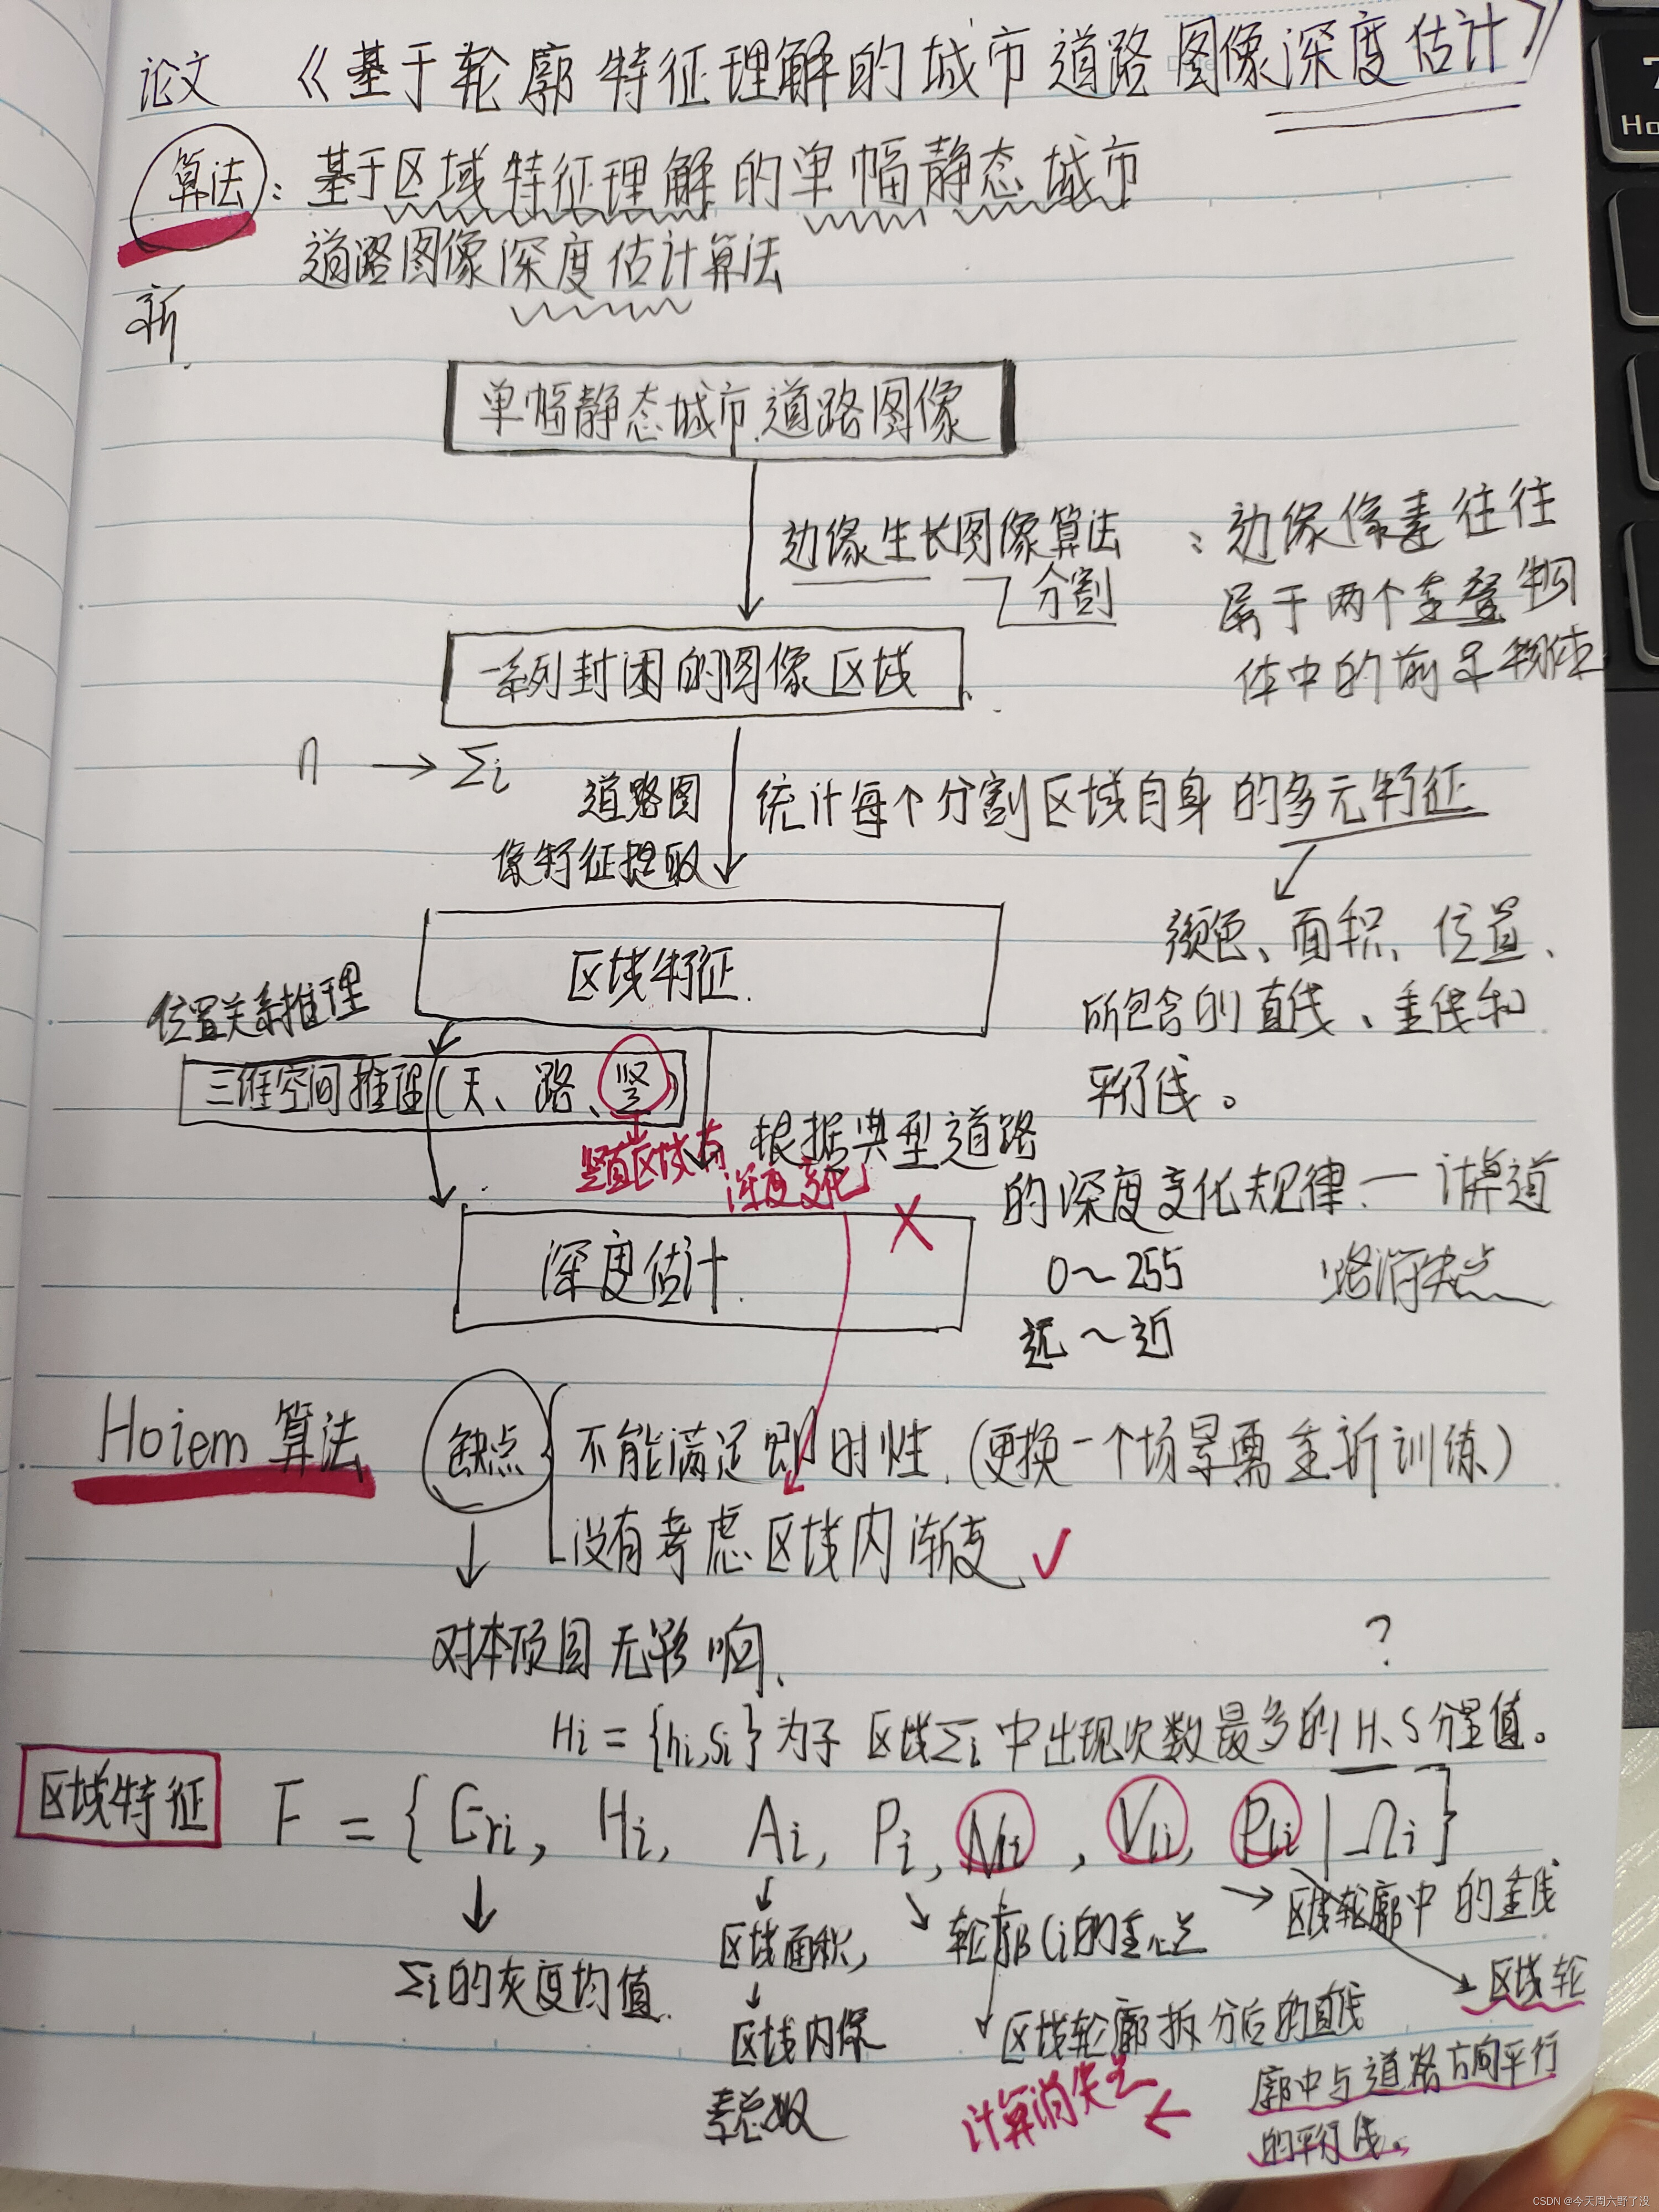 论文 《基于轮廓特征理解的城市道路图像深度估计》
算法：基于区域特征理解的单幅静态城市
道路图像深度估计算法
新
单幅静态城市道路图像
边缘生长图像算法
分割
：边缘像素往往
属于两个重叠物
体中的前景物体
一系列封闭的图像区域
n → Σi
道路图
像特征提取
统计每个分割区域自身的多元特征
颜色、面积、位置、
所包含的直线、垂线和
平行线。
区域特征
位置关系推理
三维空间推理(天、路、竖)
竖直区域有
深度变化
根据典型道路
的深度变化规律—计算道
路消失点
0～255
远～近
深度估计
X
Hoiem 算法
缺点
不能满足即时性.(更换一个场景需重新训练)
没有考虑区域内渐变 ✓
对本项目无影响.
?
Hi={hi,si}为子区域Σi中出现次数最多的H、S分量值。
区域特征 F = {Eri, Hi, Ai, Pi, Nli, Vli, Pli | Ωi}
Σi的灰度均值.
区域面积,
区域内像
素总数
轮廓Ci的重心点
区域轮廓中的垂线
区域轮廓拆分后的直线
区域轮
廓中与道路方向平行
的平行线。
计算消失点
Ho
7
CSDN @今天周六野了没